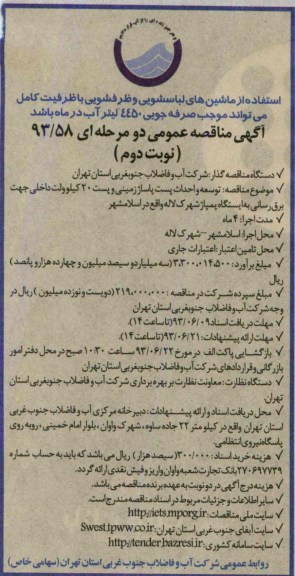 استفاده از ماشین های لباسشویی و ظرفشویی با ظرفیت کامل
می تواند موجب صرفه جویی ۴۴۵۰ لیتر آب در ماه باشد
آگهی مناقصه عمومی دو مرحله ای ۹۳/۵۸
(نوبت دوم)
✓ دستگاه مناقصه گذار: شرکت آب و فاضلاب جنوبغربی استان تهران
✓ موضوع مناقصه: توسعه و احداث پست پاساژ زمینی و پست ۲۰ کیلوولت داخلی جهت
برق رسانی به ایستگاه پمپاژ شهرک لاله واقع در اسلامشهر
✓ مدت اجرا: ۴ ماه
✓ محل اجرا: اسلامشهر – شهرک لاله
✓ محل تامین اعتبار: اعتبارات جاری
✓ مبلغ برآورد: ۳،۳۰۰،۰۱۴،۵۰۰ (سه میلیارد و سیصد میلیون و چهارده هزار و پانصد)
ریال
✓ مبلغ سپرده شرکت در مناقصه: ۲۱۹،۰۰۰،۰۰۰ (دویست و نوزده میلیون) ریال در
وجه شرکت آب و فاضلاب جنوبغربی استان تهران
✓ مهلت دریافت اسناد: ۹۳/۰۶/۰۹ (تا ساعت ۱۴).
✓ مهلت ارائه پیشنهادات: ۹۳/۰۶/۲۱ (تا ساعت ۱۴).
✓ بازگشایی پاکت الف در مورخ ۹۳/۰۶/۲۲ ساعت ۱۰:۳۰ صبح در محل دفتر امور
بازرگانی و قراردادهای شرکت آب و فاضلاب جنوبغربی استان تهران
✓ دستگاه نظارت: معاونت نظارت بر بهره برداری شرکت آب و فاضلاب جنوبغربی استان
تهران
✓ محل دریافت اسناد و ارائه پیشنهادات: دبیرخانه مرکزی آب و فاضلاب جنوب غربی
استان تهران واقع در کیلومتر ۲۲ جاده ساوه، شهرک واوان، بلوار امام خمینی، روبه روی
پاسگاه نیروی انتظامی.
✓ هزینه خرید اسناد: ۳۰۰/۰۰۰ (سیصد هزار) ریال می باشد که باید به حساب شماره
۲۷۰۶۹۷۷۳۹ بانک تجارت شعبه واوان واریز و فیش نقدی ارائه گردد.
✓ هزینه درج آگهی در دو نوبت به عهده برنده مناقصه می باشد.
✓ سایر اطلاعات و جزئیات مربوط در اسناد مناقصه مندرج است.
✓ سایت ملی مناقصات: http://iets.mporg.ir
✓ سایت آبفای جنوب غربی استان تهران: Swest.tpww.co.ir
✓ سایت سامانه کشوری: http://tender.bazresi.ir
روابط عمومی شرکت آب و فاضلاب جنوب غربی استان تهران (سهامی خاص)